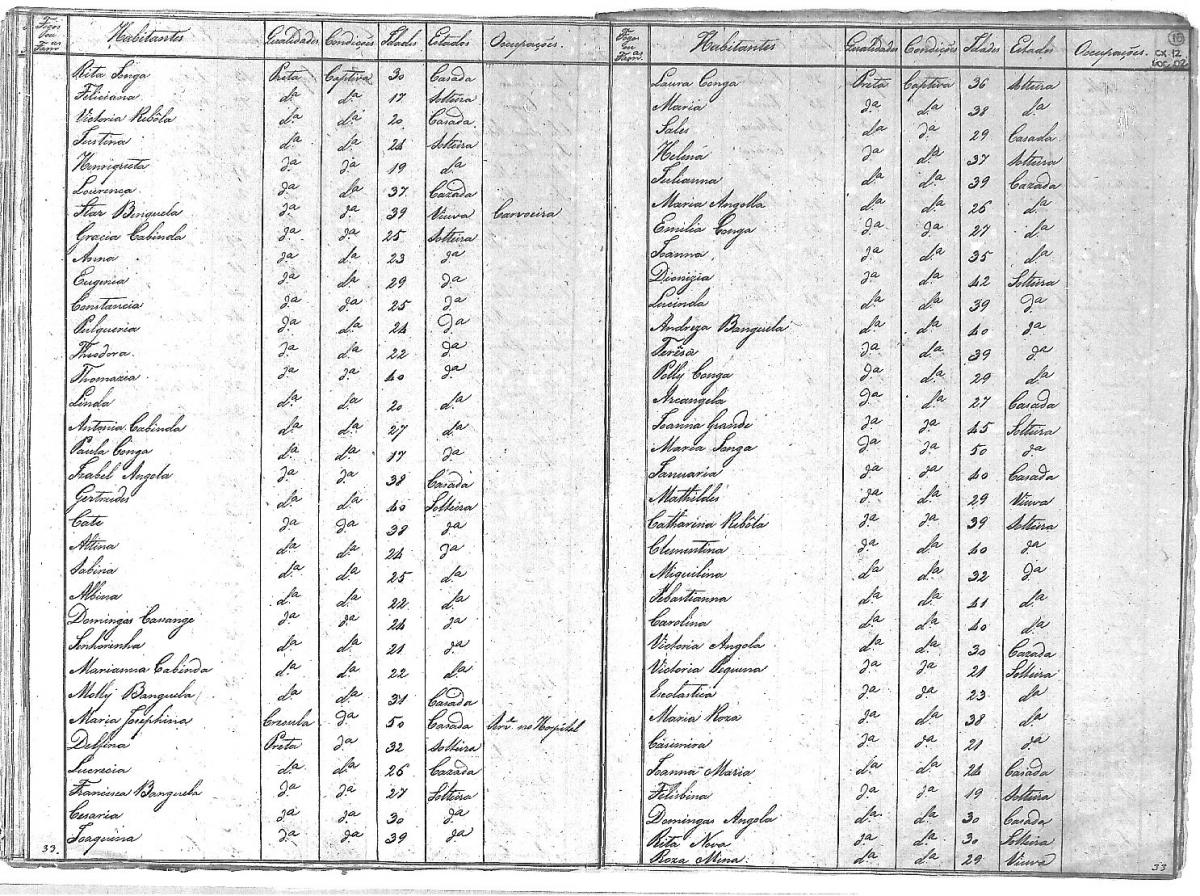 Fogos ou as Fam. Habitantes Qualidades Condições Idades Estados Occupações.
Rita Songa Preta Captiva 30 Casada
Feliciana d.a d.a 17 Solteira
Victoria Rebôla d.a d.a 20 Casada
Justina d.a d.a 24 Solteira
Henriqueta d.a d.a 19 d.a
Lourença d.a d.a 37 Cazada
Star Binguela d.a d.a 39 Viuva Carvoeira
Gracia Cabinda d.a d.a 25 Solteira
Anna d.a d.a 23 d.a
Eugenia d.a d.a 29 d.a
Constancia d.a d.a 25 d.a
Pulqueria d.a d.a 24 d.a
Theodora d.a d.a 22 d.a
Thomazia d.a d.a 40 d.a
Linda d.a d.a 20 d.a
Antonia Cabinda d.a d.a 27 d.a
Paula Conga d.a d.a 17 d.a
Izabel Angola d.a d.a 38 Casada
Gertrudes d.a d.a 40 Solteira
Cate d.a d.a 38 d.a
Altina d.a d.a 24 d.a
Sabina d.a d.a 25 d.a
Albina d.a d.a 22 d.a
Domingas Cassange d.a d.a 24 d.a
Senhorinha d.a d.a 21 d.a
Marianna Cabinda d.a d.a 22 d.a
Molly Banguela d.a d.a 31 Casada
Maria Josephina Creoula d.a 50 Casada no Hospital
Delfina Preta d.a 32 Solteira
Lucrecia d.a d.a 26 Cazada
Francisca Banguela d.a d.a 27 Solteira
Cesaria d.a d.a 30 d.a
Joaquina d.a d.a 39 d.a
33.
Fogos ou as Fam. Habitantes Qualidades Condições Idades Estados Occupações.
CX.12
DOC.02
Laura Conga Preta Captiva 36 Solteira
Maria d.a d.a 38 d.a
Sales d.a d.a 29 Casada
Helena d.a d.a 37 Solteira
Julianna d.a d.a 39 Cazada
Maria Angolla d.a d.a 26 d.a
Emilia Conga d.a d.a 27 d.a
Joanna d.a d.a 35 d.a
Dionizia d.a d.a 42 Solteira
Lucinda d.a d.a 39 d.a
Andreza Banguela d.a d.a 40 d.a
Terêsa d.a d.a 39 d.a
Polly Conga d.a d.a 29 d.a
Arcangela d.a d.a 27 Casada
Joanna Grande d.a d.a 45 Solteira
Maria Songa d.a d.a 50 d.a
Januaria d.a d.a 40 Casada
Mathildes d.a d.a 29 Viuva
Catharina Rebôla d.a d.a 39 Solteira
Clementina d.a d.a 40 d.a
Miquilina d.a d.a 32 d.a
Sebastianna d.a d.a 41 d.a
Carolina d.a d.a 40 d.a
Victoria Angola d.a d.a 30 Cazada
Victoria Piquena d.a d.a 21 Solteira
Escolastica d.a d.a 23 d.a
Maria Roza d.a d.a 38 d.a
Casimira d.a d.a 21 d.a
Joanna Maria d.a d.a 24 Casada
Felisbina d.a d.a 19 Solteira
Domingas Angola d.a d.a 30 Casada
Rita Nova d.a d.a 30 Solteira
Roza Mina d.a d.a 29 Viuva
33